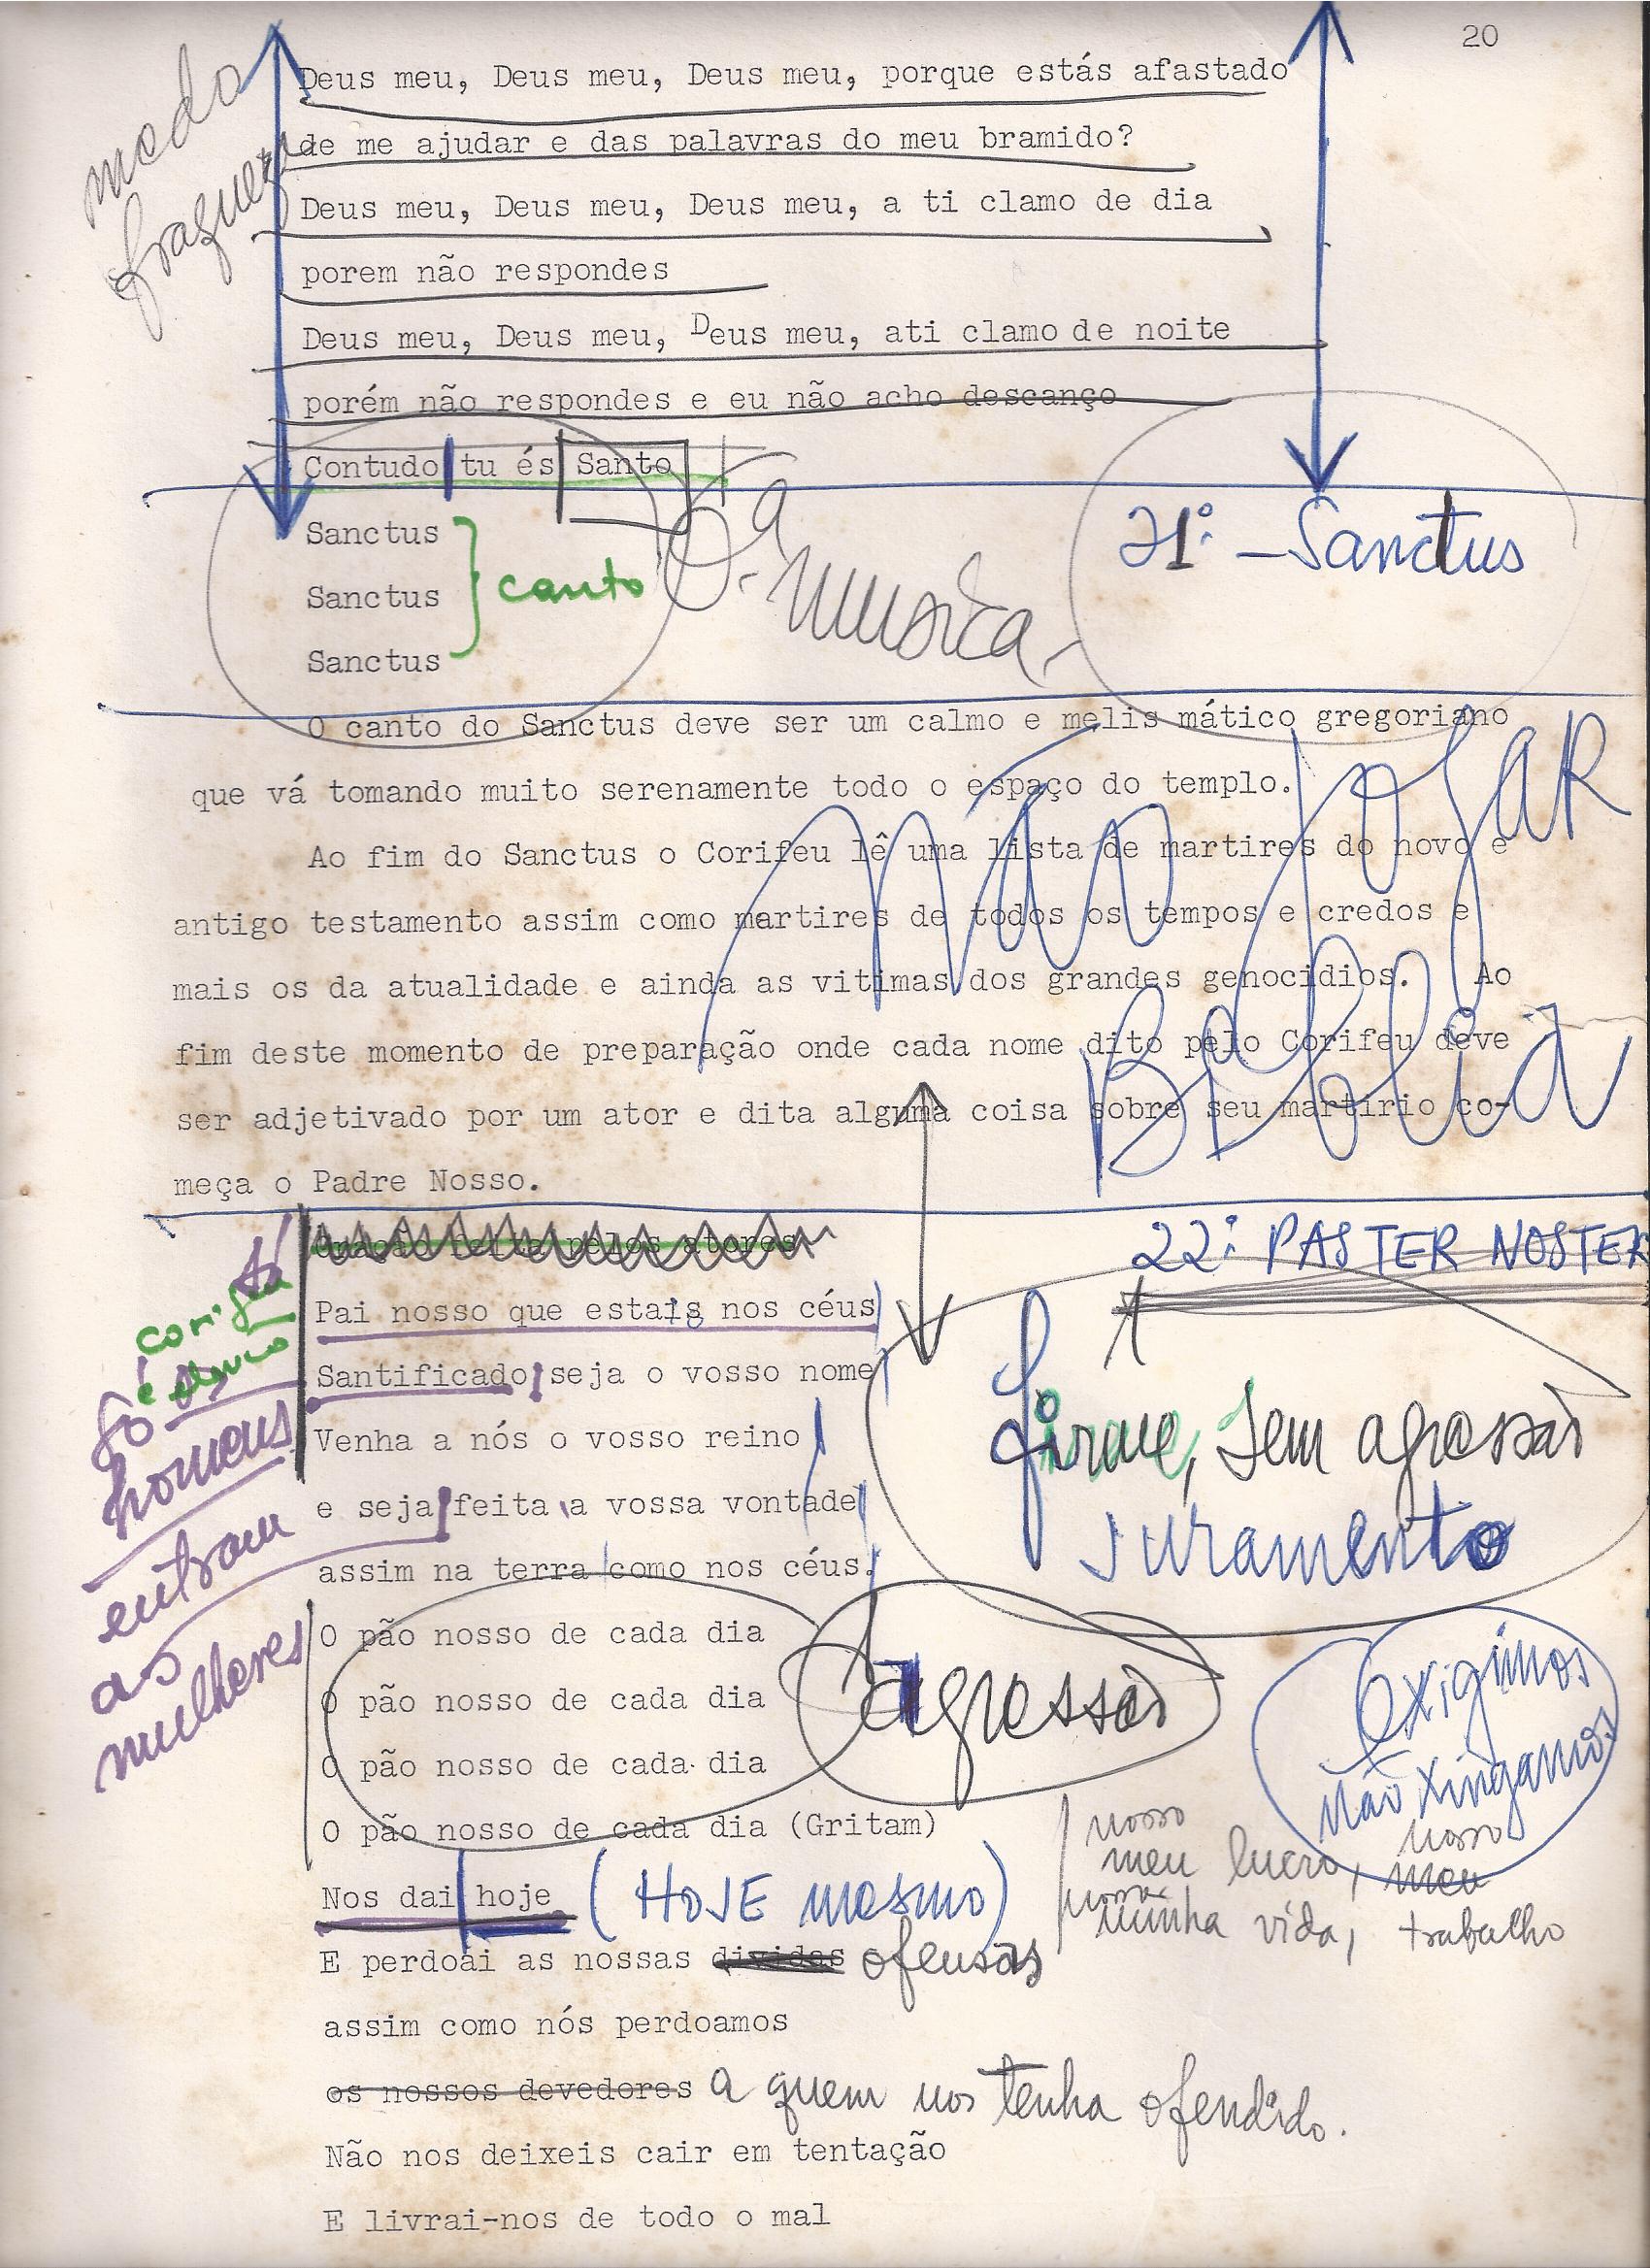 20
medo
fraqueza
Deus meu, Deus meu, Deus meu, porque estás afastado
de me ajudar e das palavras do meu bramido?
Deus meu, Deus meu, Deus meu, a ti clamo de dia
porem não respondes
Deus meu, Deus meu, Deus meu, ati clamo de noite
porém não respondes e eu não acho descanço
Contudo tu és Santo
Sanctus
Sanctus
Sanctus
canto
música
21º - Sanctus
O canto do Sanctus deve ser um calmo e melis mático gregoriano
que vá tomando muito serenamente todo o espaço do templo.
Ao fim do Sanctus o Corifeu lê uma lista de martires do novo e
antigo testamento assim como martires de todos os tempos e credos e
mais os da atualidade e ainda as vitimas dos grandes genocidios. Ao
fim deste momento de preparação onde cada nome dito pelo Corifeu deve
ser adjetivado por um ator e dita alguma coisa sobre seu martirio co-
meça o Padre Nosso.
não jogar
a Bíblia
22º PASTER NOSTER
corifeu
e elenco
Só os
homens
entram
as
mulheres
Pai nosso que estais nos céus
Santificado seja o vosso nome
Venha a nós o vosso reino
e seja feita a vossa vontade
assim na terra como nos céus.
firme, sem agressão
juramento
O pão nosso de cada dia
O pão nosso de cada dia
O pão nosso de cada dia
O pão nosso de cada dia (Gritam)
agressão
Exigimos
não xingamos
Nos dai hoje (HOJE mesmo)
nosso
meu lucro, nosso meu
nossa
minha vida, trabalho
E perdoai as nossas dividas ofensas
assim como nós perdoamos
os nossos devedores a quem nos tenha ofendido.
Não nos deixeis cair em tentação
E livrai-nos de todo o mal